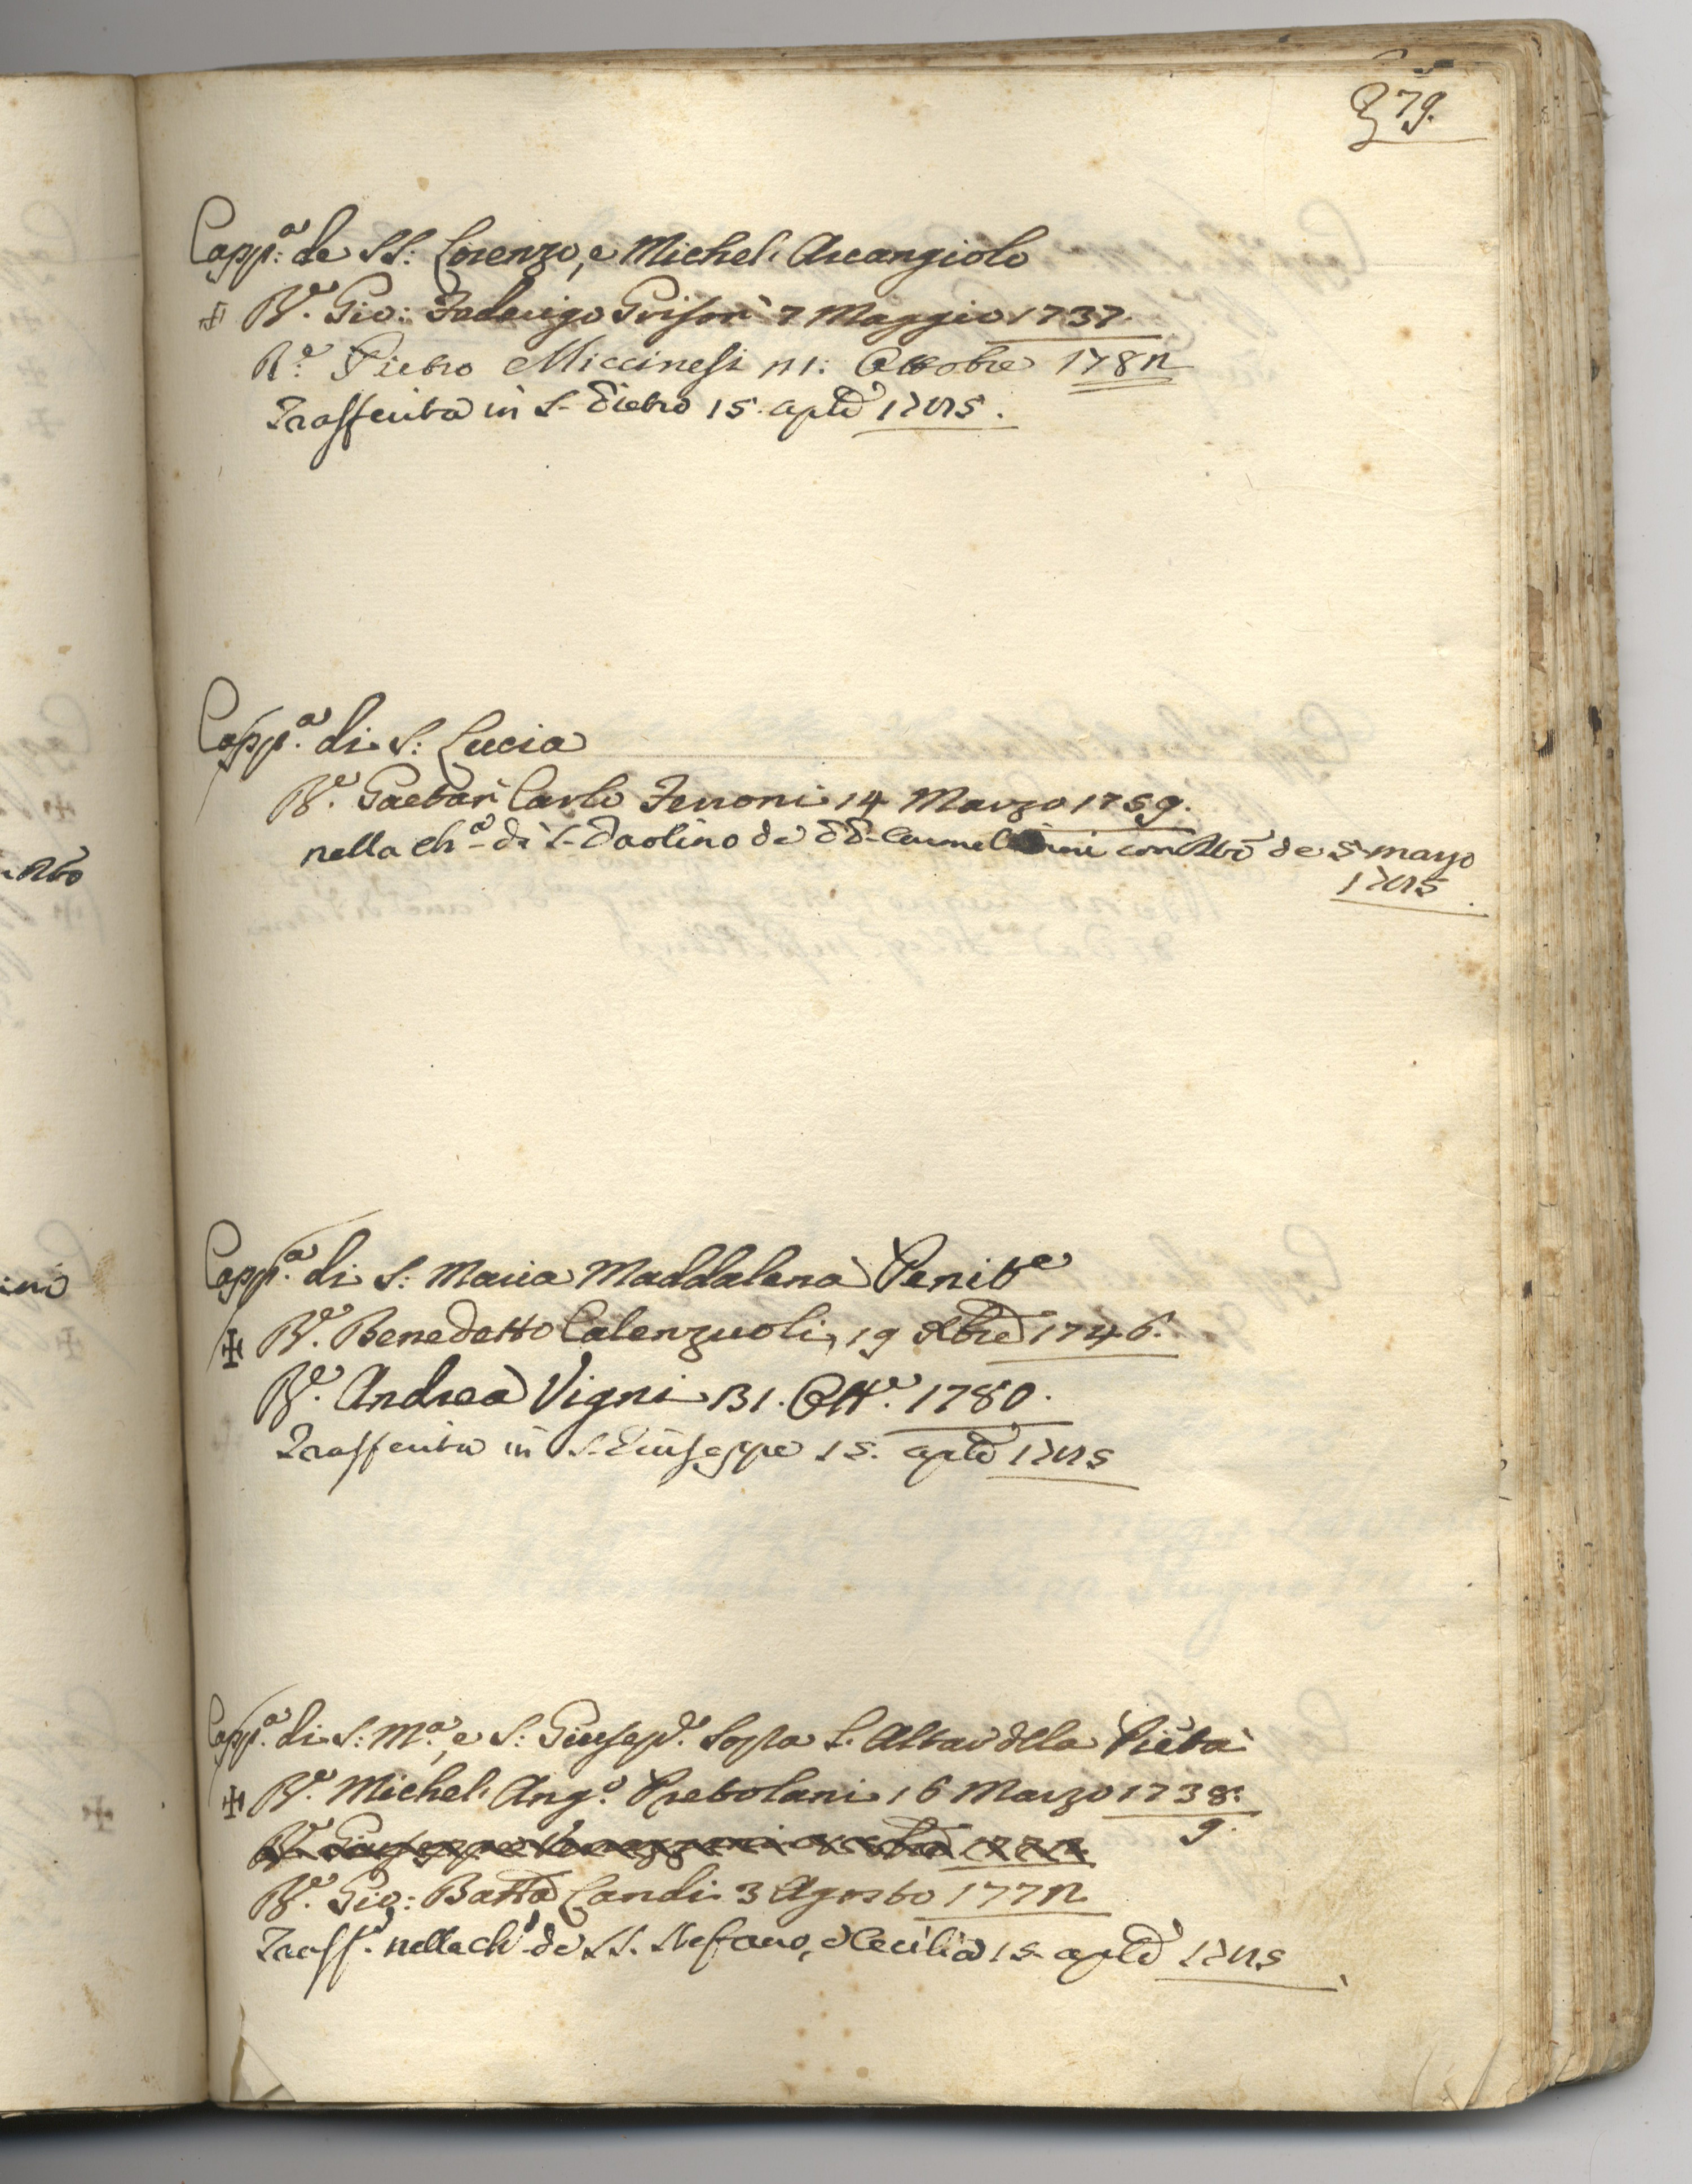 79.
Capp:ª de SS: Lorenzo, e Michel. Arcangiolo
✠ Rᵉ. Gio: Federigo Grisoni 7 Maggio 1737
Rᵉ. Pietro Miccinesi 21: Ottobre 1782
Trasferita in S. Pietro 15. aple 1785.
Capp.ª di S: Lucia
Rᵉ. Gaetan Carlo Ferroni 14 Marzo 1759.
nella chª di S. Paolino de PP. Carmelitani con de 5 marzo
1785
Capp.ª di S: Maria Maddalena Penitᵉ
✠ Rᵉ. Benedetto Calenzuoli, 19 1746.
Rᵉ. Andrea Vigni 31. Ottᵉ. 1780.
Trasferita in S. Giuseppe 15. aple 1785
Capp.ª di S: Mª, e S: Giusepᵉ. Sopra l. Altar della Pietà
✠ Rᵉ. Michel. Angº. Pretolani 16 Marzo 1738.
9.
Rᵉ. Gio: Batta Landi 3 Agosto 1772
Trasf. nella chª de SS. Stefano, e Cecilia 15. aple 1785
Abo